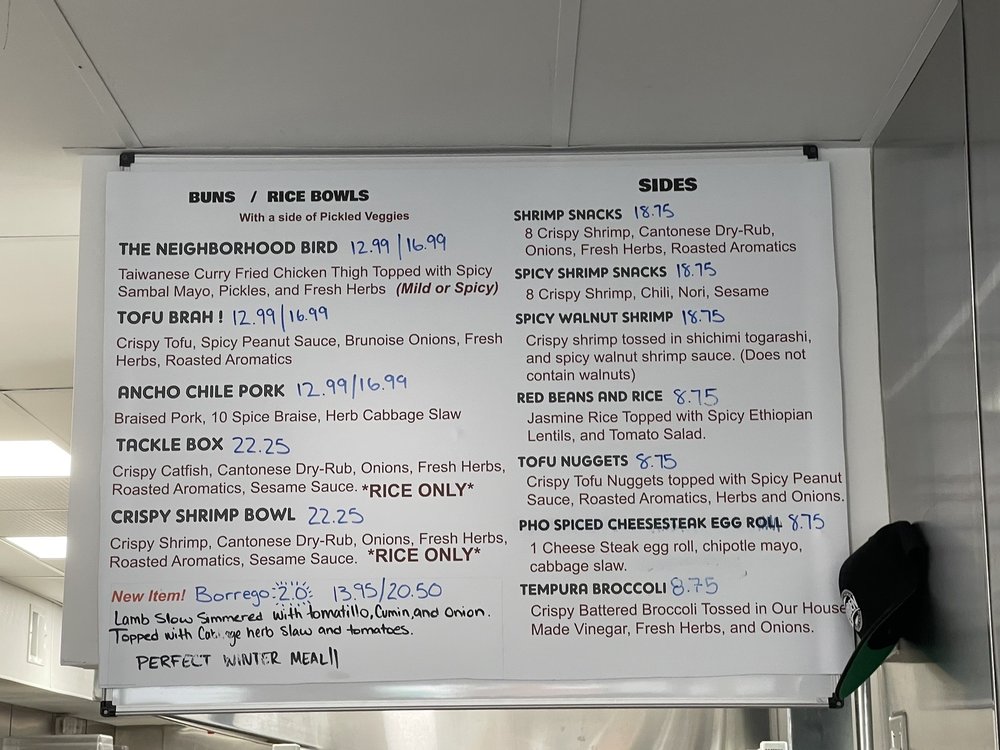 BUNS / RICE BOWLS
With a side of Pickled Veggies
THE NEIGHBORHOOD BIRD 12.99/16.99
Taiwanese Curry Fried Chicken Thigh Topped with Spicy
Sambal Mayo, Pickles, and Fresh Herbs (Mild or Spicy)
TOFU BRAH! 12.99/16.99
Crispy Tofu, Spicy Peanut Sauce, Brunoise Onions, Fresh
Herbs, Roasted Aromatics
ANCHO CHILE PORK 12.99/16.99
Braised Pork, 10 Spice Braise, Herb Cabbage Slaw
TACKLE BOX 22.25
Crispy Catfish, Cantonese Dry-Rub, Onions, Fresh Herbs,
Roasted Aromatics, Sesame Sauce. *RICE ONLY*
CRISPY SHRIMP BOWL 22.25
Crispy Shrimp, Cantonese Dry-Rub, Onions, Fresh Herbs,
Roasted Aromatics, Sesame Sauce. *RICE ONLY*
New Item! Borrego 2.0 13.95/20.50
Lamb Slow Simmered with tomatillo, Cumin, and Onion.
Topped with herb slaw and tomatoes.
PERFECT WINTER MEAL!!
SIDES
SHRIMP SNACKS 18.75
8 Crispy Shrimp, Cantonese Dry-Rub,
Onions, Fresh Herbs, Roasted Aromatics
SPICY SHRIMP SNACKS 18.75
8 Crispy Shrimp, Chili, Nori, Sesame
SPICY WALNUT SHRIMP 18.75
Crispy shrimp tossed in shichimi togarashi,
and spicy walnut shrimp sauce. (Does not
contain walnuts)
RED BEANS AND RICE 8.75
Jasmine Rice Topped with Spicy Ethiopian
Lentils, and Tomato Salad.
TOFU NUGGETS 8.75
Crispy Tofu Nuggets topped with Spicy Peanut
Sauce, Roasted Aromatics, Herbs and Onions.
PHO SPICED CHEESESTEAK EGG ROLL 8.75
1 Cheese Steak egg roll, chipotle mayo,
cabbage slaw.
TEMPURA BROCCOLI 8.75
Crispy Battered Broccoli Tossed in Our House
Made Vinegar, Fresh Herbs, and Onions.